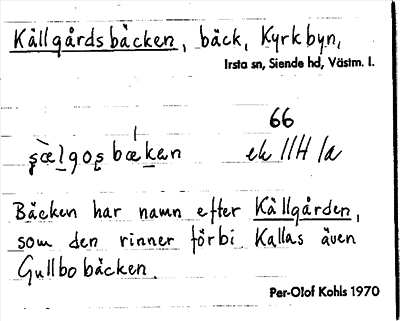 Källgårdsbäcken, bäck, Kyrkbyn,
Irsta sn, Siende hd, Västm. l.
66
ek 11H 1a
Bäcken har namn efter Källgården,
som den rinner förbi Kallas även
Gullbobäcken.
Per-Olof Kohls 1970